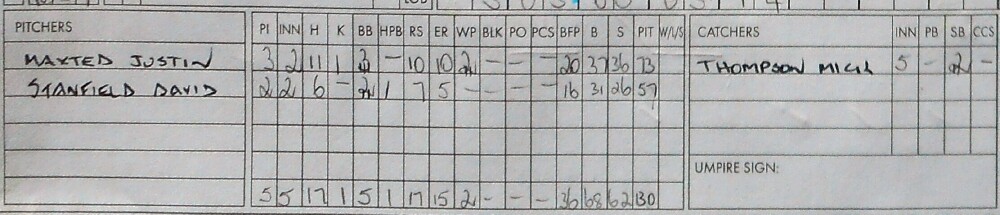 PITCHERS PI INN H K BB HPB RS ER WP BLK PO PCS BFP B S PIT W/L/S CATCHERS INN PB SB CCS
MAXTED JUSTIN 3 2 11 1 3 - 10 10 2 - - - 20 37 36 73 THOMPSON 5 - 2 -
STANFIELD DAVID 2 2 6 - 2 1 7 5 - - - - 16 31 26 57
UMPIRE SIGN:
5 5 17 1 5 1 17 15 2 - - - 36 68 62 130